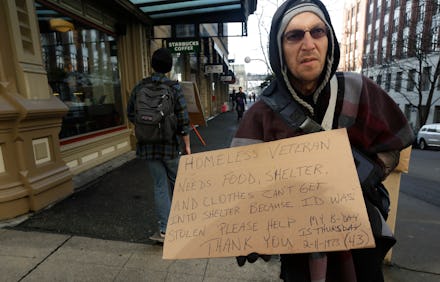 STARBUCKS
COFFEE
HOMELESS VETERAN
NEEDS FOOD, SHELTER,
AND CLOTHES CAN'T GET
INTO SHELTER BECAUSE I.D. WAS
STOLEN PLEASE HELP MY B-DAY
IS THURSDAY
THANK YOU 2-11-1973 (43)